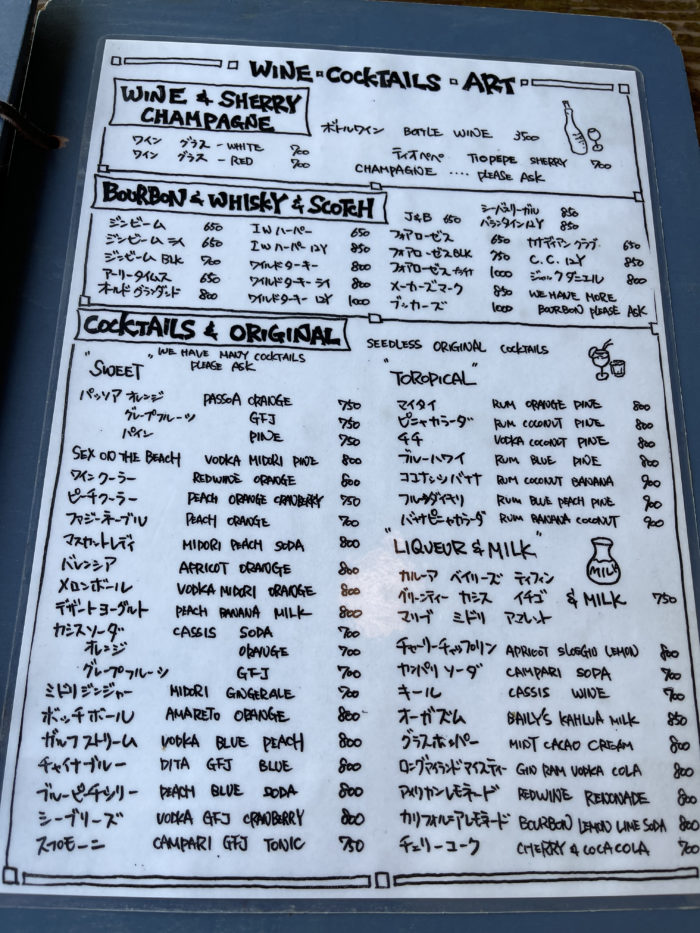 WINE COCKTAILS ART
WINE & SHERRY
CHAMPAGNE
ボトルワイン BOTTLE WINE 3500
ワイン グラス - WHITE 700
ワイン グラス - RED 700
ティオペペ TIOPEPE SHERRY 700
CHAMPAGNE .... PLEASE ASK
BOURBON & WHISKY & SCOTCH
ジンビーム 650
ジンビーム ライ 650
ジンビーム BLK 700
アーリータイムス 650
オールドグランダッド 800
I.W ハーパー 650
I.W ハーパー 12Y 850
ワイルドターキー 800
ワイルドターキー ライ 800
ワイルドターキー 12Y 1000
J&B 650
フォアローゼス 650
フォアローゼスBLK 750
フォアローゼス プラチナ 1000
メーカーズマーク 850
ブッカーズ 1000
シーバスリーガル 850
バランタイン12Y 850
カナディアンクラブ 650
C.C. 12Y 850
ジャックダニエル 800
WE HAVE MORE
BOURBON PLEASE ASK
COCKTAILS & ORIGINAL
SEEDLESS ORIGINAL COCKTAILS
"SWEET" WE HAVE MANY COCKTAILS
PLEASE ASK
パッソア オレンジ PASSOA ORANGE 750
グレープフルーツ GFJ 750
パイン PINE 750
SEX ON THE BEACH VODKA MIDORI PINE 800
ワインクーラー REDWINE ORANGE 800
ピーチクーラー PEACH ORANGE CRANBERRY 750
ファジーネーブル PEACH ORANGE 700
マスカットレディ MIDORI PEACH SODA 800
バレンシア APRICOT ORANGE 800
メロンボール VODKA MIDORI ORANGE 800
デザートヨーグルト PEACH BANANA MILK 800
カシスソーダ CASSIS SODA 700
オレンジ ORANGE 700
グレープフルーツ GFJ 700
ミドリジンジャー MIDORI GINGERALE 700
ボッチボール AMARETO ORANGE 800
ガルフストリーム VODKA BLUE PEACH 800
チャイナブルー DITA GFJ BLUE 800
ブルーピーチシリー PEACH BLUE SODA 800
シーブリーズ VODKA GFJ CRANBERRY 800
スプモーニ CAMPARI GFJ TONIC 750
"TOROPICAL"
マイタイ RUM ORANGE PINE 800
ピニャカラーダ RUM COCONUT PINE 800
チチ VODKA COCONUT PINE 800
ブルーハワイ RUM BLUE PINE 800
ココナッツバナナ RUM COCONUT BANANA 900
フルーツダイキリ RUM BLUE PEACH PINE 800
バナナピニャカラーダ RUM BANANA COCONUT 900
"LIQUEUR & MILK"
MILK
カルーア ベイリーズ ティフィン
グリーンティー カシス イチゴ & MILK 750
マリブ ミドリ アマレット
チャーリーチャップリン APRICOT SLOEGIO LEMON 800
カンパリソーダ CAMPARI SODA 700
キール CASSIS WINE 700
オーガズム BAILY'S KAHLUA MILK 850
グラスホッパー MINT CACAO CREAM 800
ロングアイランドアイスティー GIN RAM VODKA COLA 800
アメリカンレモネード REDWINE REMONADE 800
カリフォルニアレモネード BOURBON LEMON LIME SODA 800
チェリーコーク CHERRY & COCACOLA 700